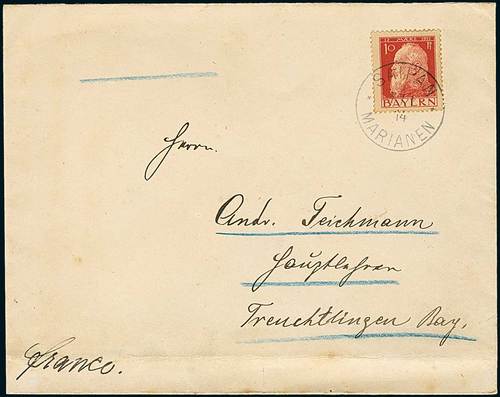 12. MÄRZ 1911
10 Pf
BAYERN
SAIPAN
14
MARIANEN
Herrn.
Andr. Teichmann
Hauptlehrer
Treuchtlingen Bay.
Franco.